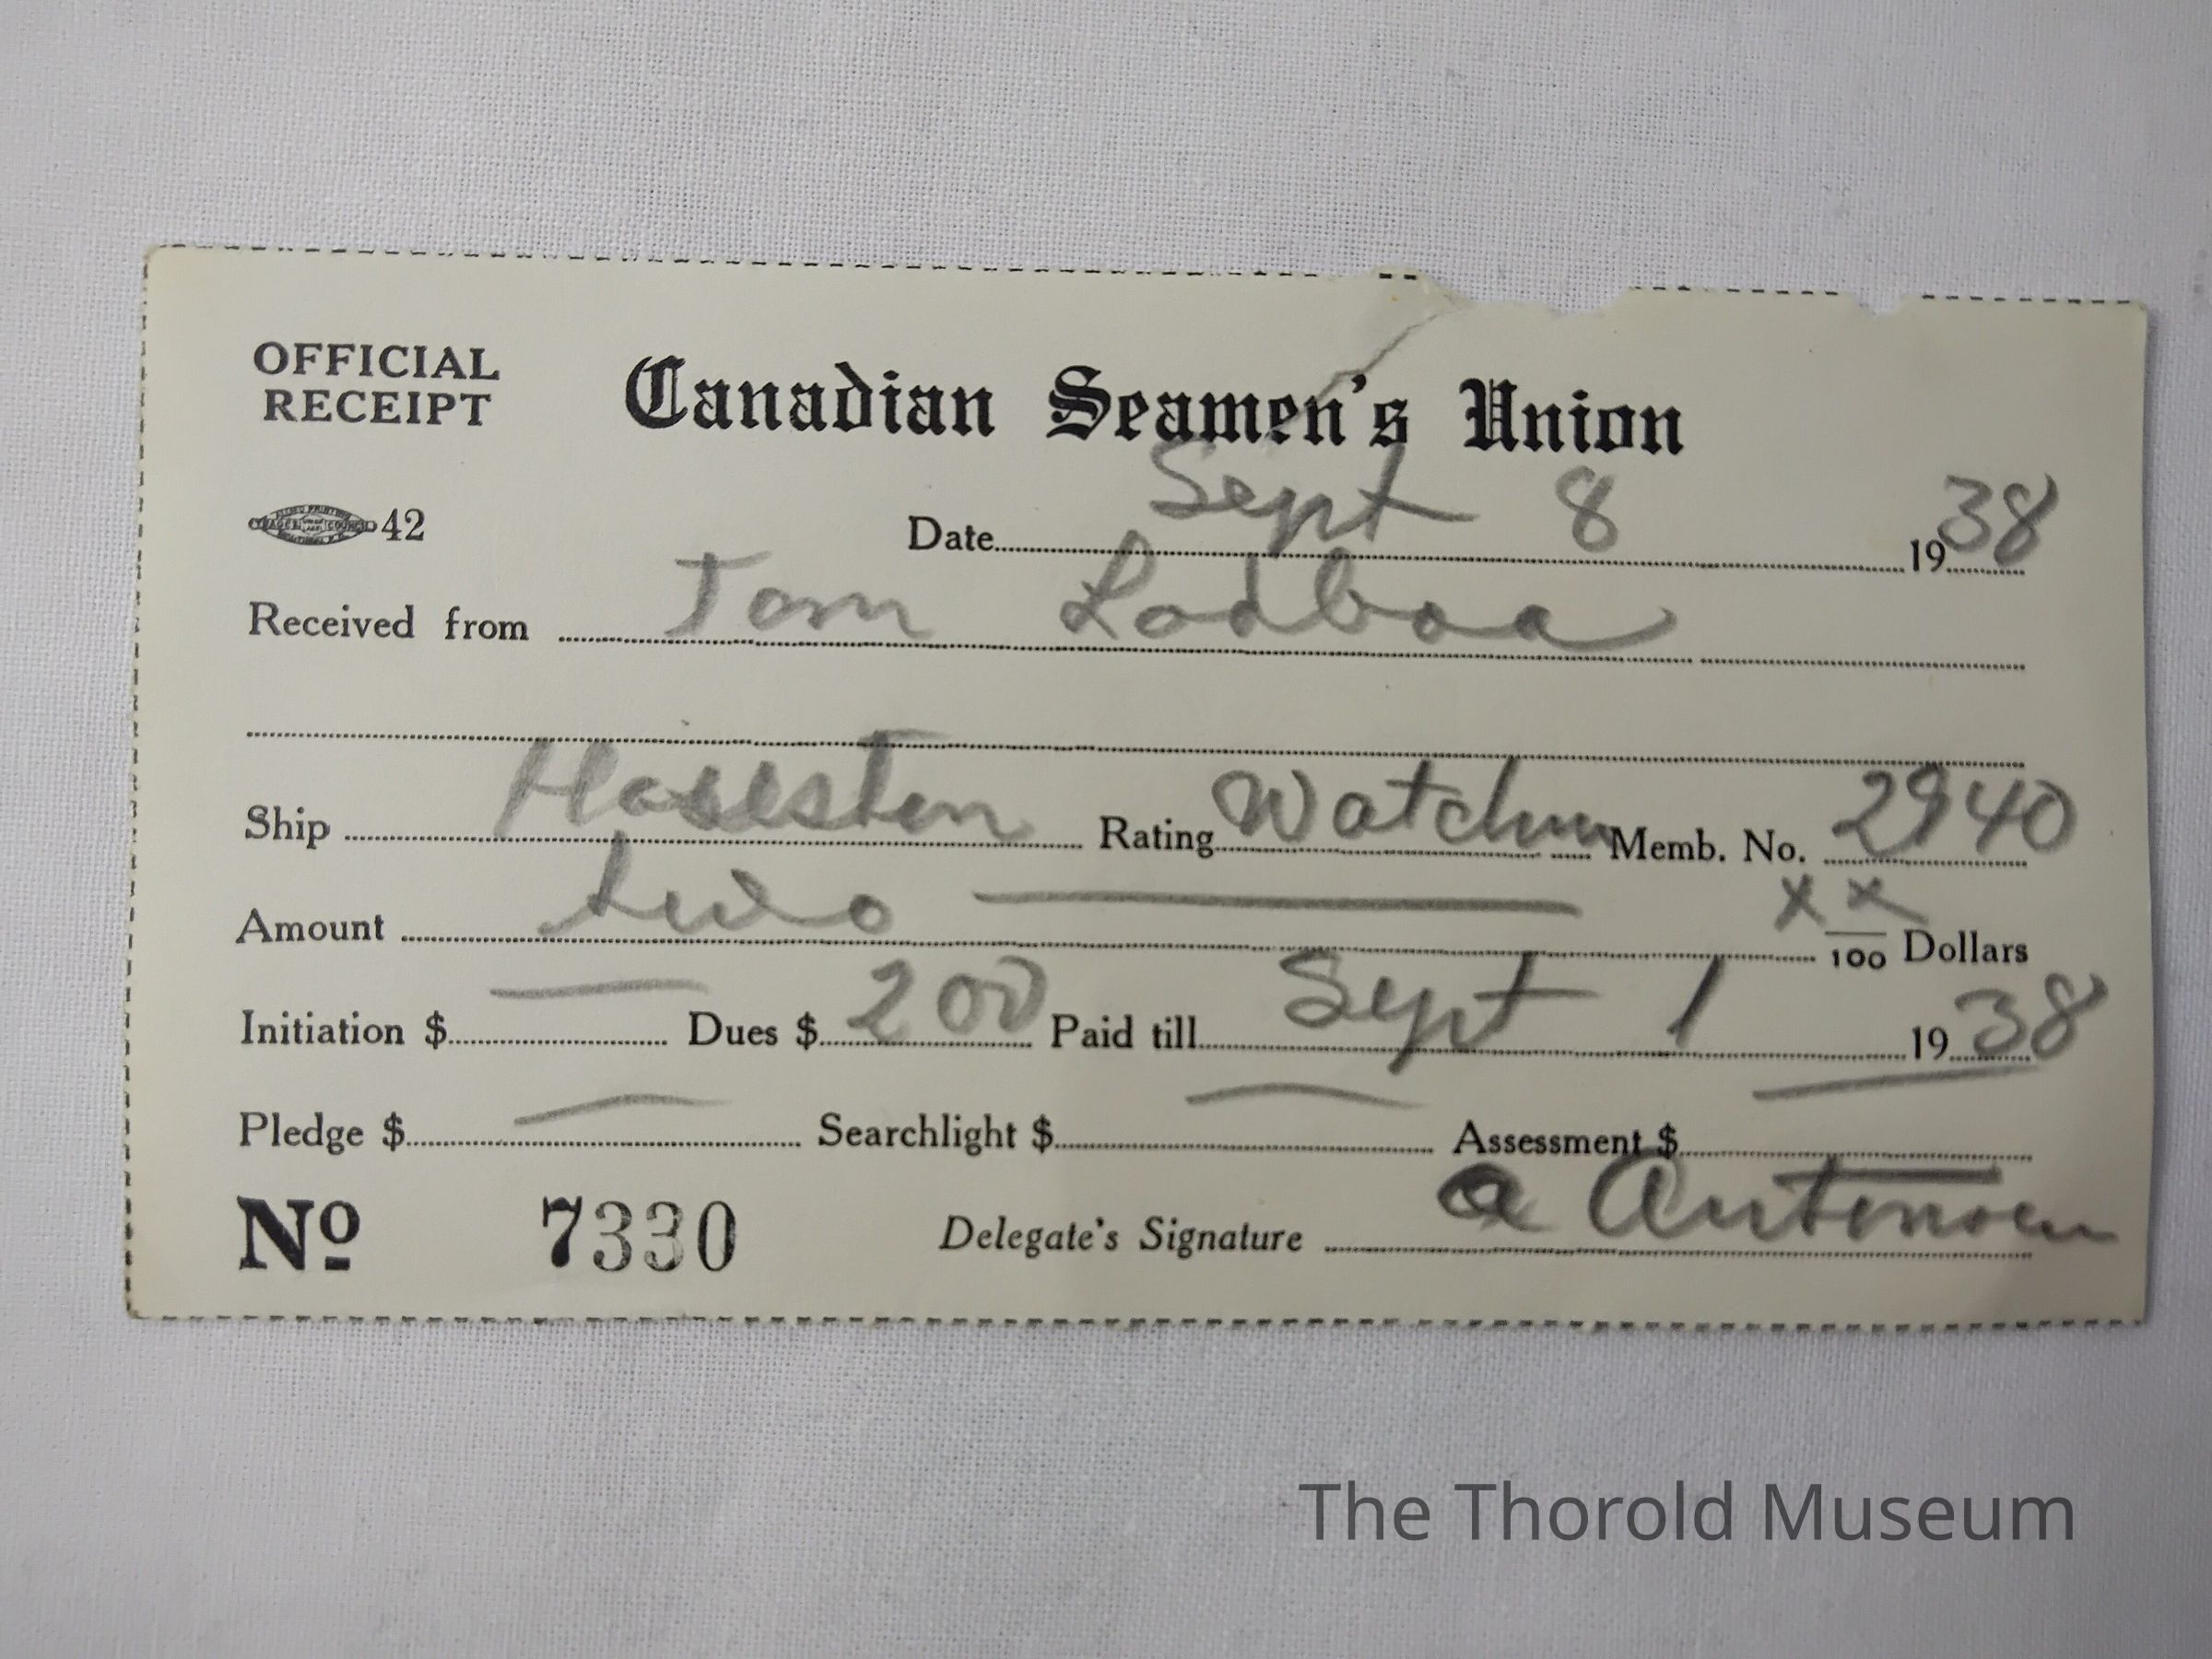 OFFICIAL
RECEIPT
Canadian Seamen's Union
42
Date Sept 8 1938
Received from Tom Lodboa
Ship Rating Watchmn Memb. No. 2940
Amount two — xx/100 Dollars
Initiation $ — Dues $ 200 Paid till Sept 1 1938
Pledge $ — Searchlight $ — Assessment $ —
Nº 7330 Delegate's Signature a
The Thorold Museum